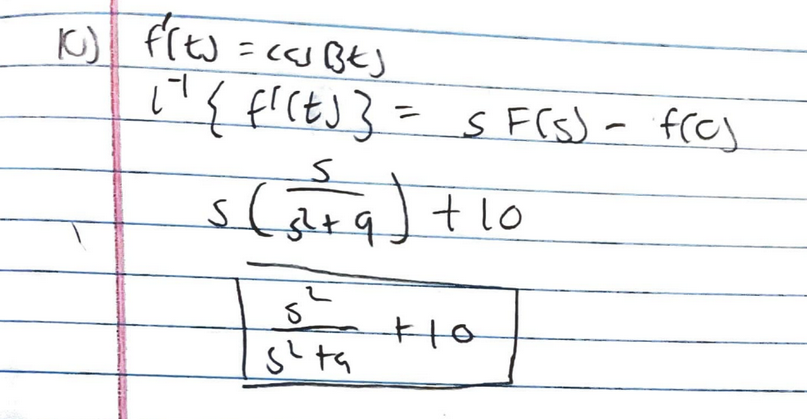 1c) f'(t) = cos(3t)
L⁻¹ { f'(t) } = s F(s) - f(0)
s ( s / (s² + 9) ) + 10
s² / (s² + 9) + 10